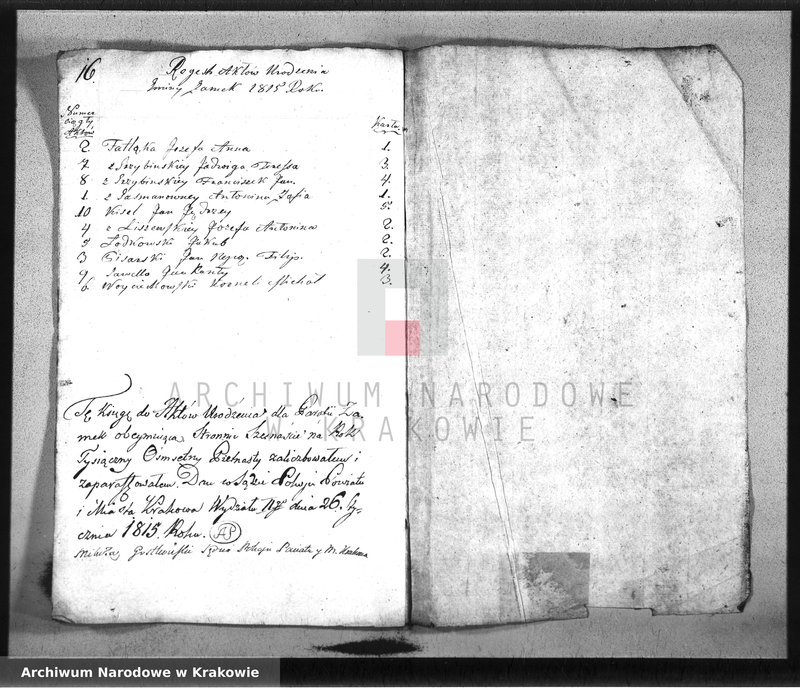 16.
Regestr Aktów Urodzenia
Gminy Zamek 1815 Roku.
Numer
ciągły
Aktów
Karta
2 Fatląka Jozefa Anna 1.
7 z Szrybinskiey Jadwiga Teressa 3.
8 z Szrybinskiey Franciszek Jan. 4.
1 z Jasmanowney Antonina Zofia 1.
10 Kisiel Jan Jędrzey 5.
4 z Liszewskiey Jozefa Antonina 2.
5 Lodkowski Jakub 2.
3 Pisarski Jan Filip. 2.
9 Sawella Jan Kanty 4.
6 Woyciechowski Korneli Michał 3.
Tę Księgę do Aktów Urodzenia dla Parafii Za-
mek obeymuiącą Stronnic Szesnaście na Rok
Tysiączny Osmsetny Pietnasty zaliczbowałem i
zaparafowałem. Dan w Sądzie Pokoju Powiatu
i Miasta Krakowa Wydziału dnia 26. Sty-
cznia 1815. Roku. AP
Mikołay Sądu Pokoju Powiatu y M. Krakowa
ARCHIWUM NARODOWE
W KRAKOWIE
Archiwum Narodowe w Krakowie